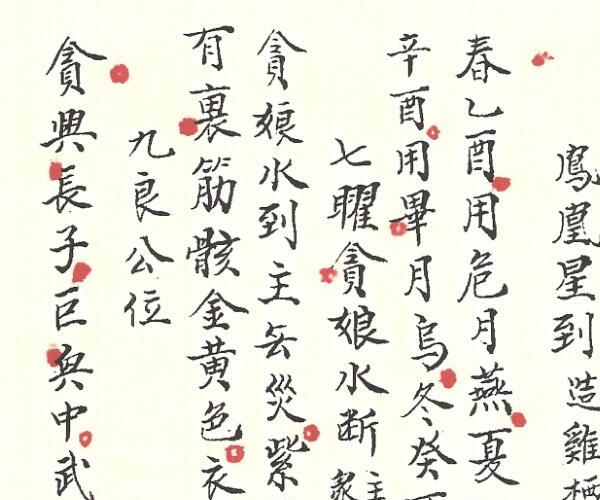 鳳凰星到 造雞栖
春乙酉用危月燕夏
辛酉用畢月烏冬癸
七曜貪娘水断
貪娘水到主無災紫
有裏筋骸金黄色衣
九良公位
貪興長子巨興中武